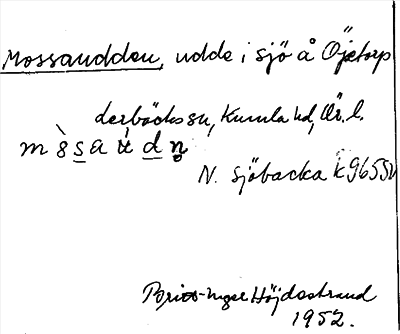 Mossaudden, udde i sjö å Öjetorp
derbäcks sn, Kumla hd, Ör. l.
m s̀ s a ù d n̥
N. Sjöbacka k 9655N
Brita-Inger Höjdestrand
1952.